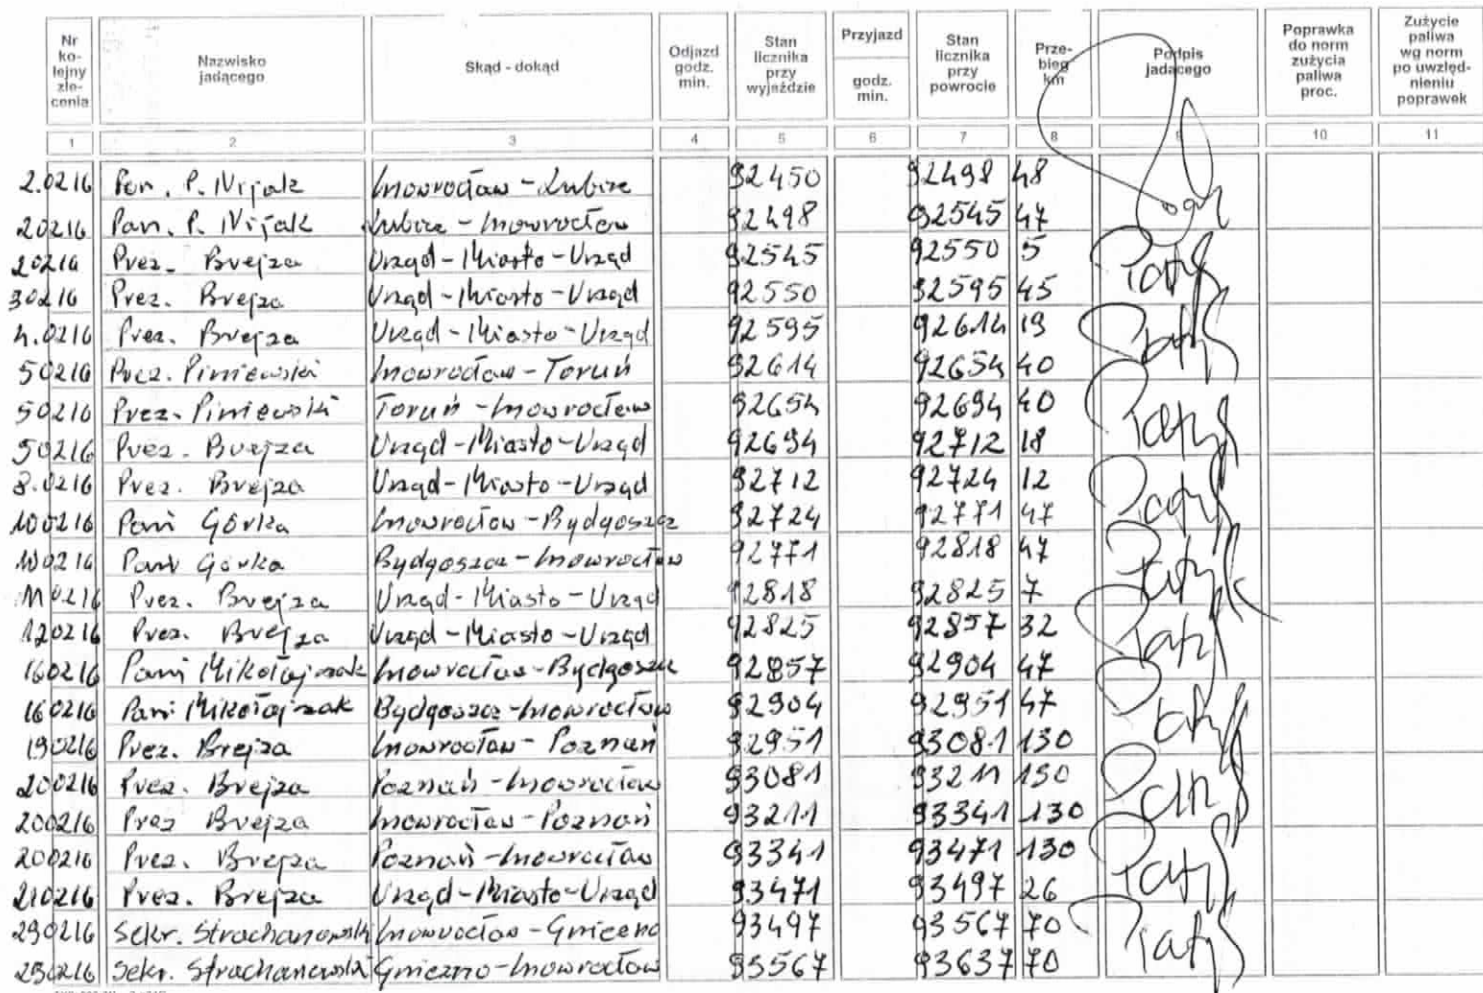 Nr kolejny zlecenia | Nazwisko jadącego | Skąd - dokąd | Odjazd godz. min. | Stan licznika przy wyjeździe | Przyjazd godz. min. | Stan licznika przy powrocie | Przebieg km | Podpis jadącego | Poprawka do norm zużycia paliwa proc. | Zużycie paliwa wg norm po uwzględnieniu poprawek
1 2 3 4 5 6 7 8 9 10 11
2.0216 Pan. P. Nijak Inowrocław - Lubice 92450 92498 48
20216 Pan. P. Nijak Lubice - Inowrocław 92498 92545 47
20216 Prez. Brejza Urząd - Miasto - Urząd 92545 92550 5
30216 Prez. Brejza Urząd - Miasto - Urząd 92550 92595 45
4.0216 Prez. Brejza Urząd - Miasto - Urząd 92595 92614 19
50216 Prez. Piniewski Inowrocław - Toruń 92614 92654 40
50216 Prez. Piniewski Toruń - Inowrocław 92654 92694 40
50216 Prez. Brejza Urząd - Miasto - Urząd 92694 92712 18
8.0216 Prez. Brejza Urząd - Miasto - Urząd 92712 92724 12
100216 Pani Górka Inowrocław - Bydgoszcz 92724 92771 47
100216 Pani Górka Bydgoszcz - Inowrocław 92771 92818 47
110216 Prez. Brejza Urząd - Miasto - Urząd 92818 92825 7
120216 Prez. Brejza Urząd - Miasto - Urząd 92825 92857 32
160216 Pani Mikołajczak Inowrocław - Bydgoszcz 92857 92904 47
160216 Pani Mikołajczak Bydgoszcz - Inowrocław 92904 92951 47
190216 Prez. Brejza Inowrocław - Poznań 92951 93081 130
200216 Prez. Brejza Poznań - Inowrocław 93081 93211 130
200216 Prez Brejza Inowrocław - Poznań 93211 93341 130
200216 Prez. Brejza Poznań - Inowrocław 93341 93471 130
210216 Prez. Brejza Urząd - Miasto - Urząd 93471 93497 26
290216 Sekr. Strachanowski Inowrocław - Gniezno 93497 93567 70
290216 Sekr. Strachanowski Gniezno - Inowrocław 93567 93637 70